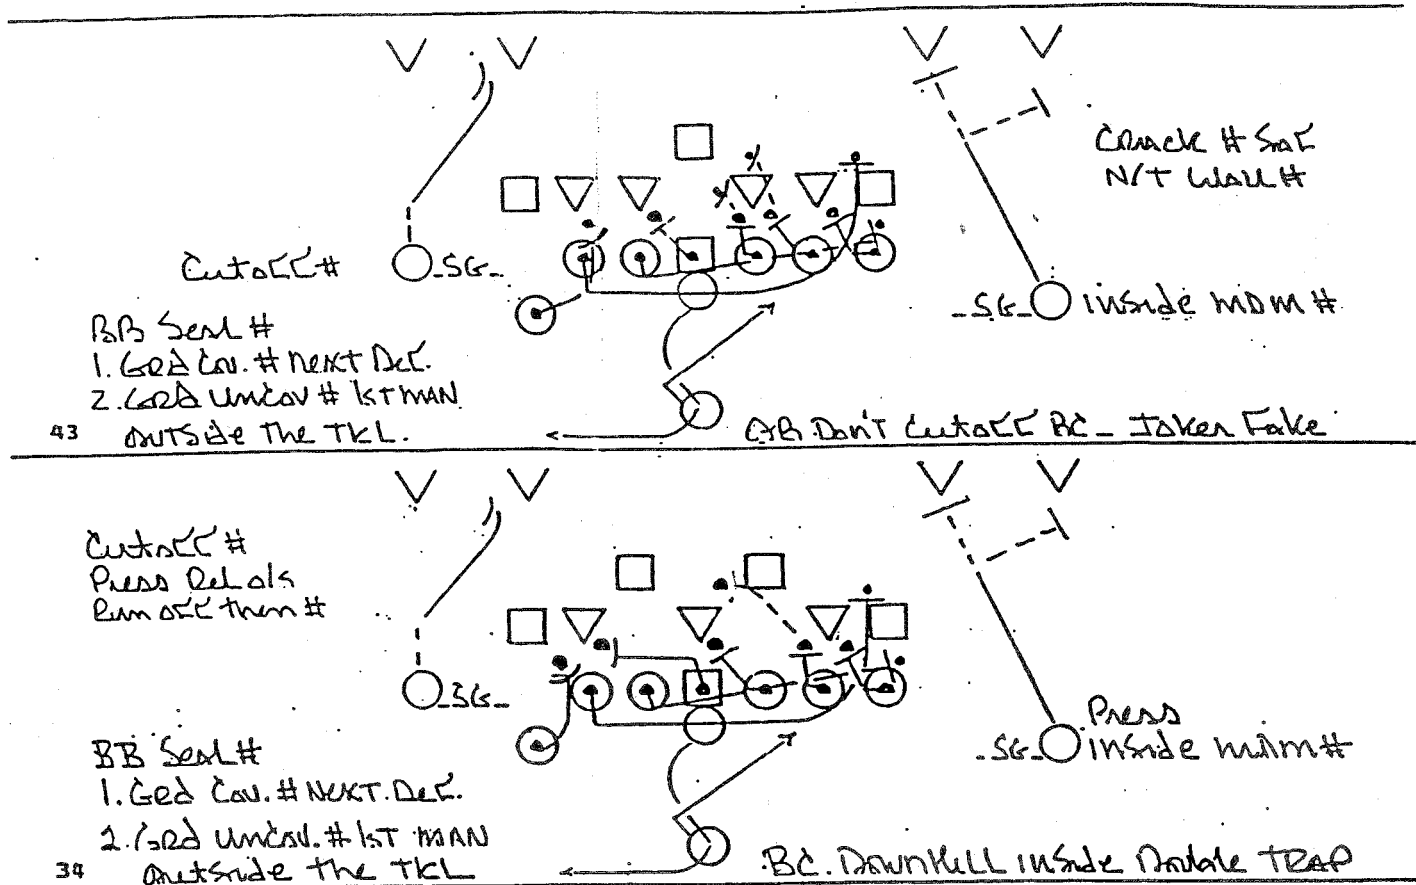 Crack # Saf
N/T Wall #
Cutoff #
-SG-
-SG-
inside mdm #
BB Seal #
1. Grd Cov. # Next Def.
2. Grd Uncov # 1st MAN
outside the TKL.
43
QB Don't Cutoff BC - Token Fake
Cutoff #
Press Rel o/s
Run off then #
-SG-
Press
-SG-
inside mdm #
BB Seal #
1. Grd Cov. # Next. Def.
2. Grd Uncov. # 1st MAN
outside the TKL
34
BC. DownHill inside Double TRAP